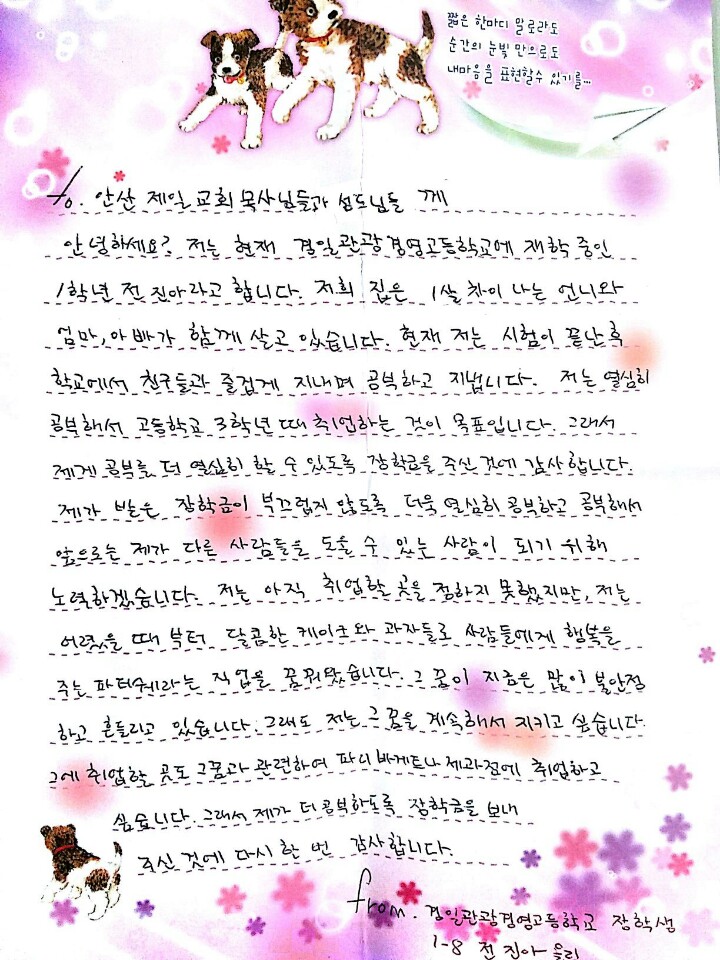 짧은 한마디 말로라도
순간의 눈빛 만으로도
내마음을 표현할수 있기를...
to. 안산 제일교회 목사님들과 성도님들 께
안녕하세요? 저는 현재 경일관광경영고등학교에 재학중인
1학년 전진아라고 합니다. 저희 집은 1살 차이 나는 언니와
엄마, 아빠가 함께 살고 있습니다. 현재 저는 시험이 끝난 후
학교에서 친구들과 즐겁게 지내며 공부하고 지냅니다. 저는 열심히
공부해서 고등학교 3학년 때 취업하는 것이 목표입니다. 그래서
제게 공부를 더 열심히 할 수 있도록 장학금을 주신 것에 감사합니다.
제가 받은 장학금이 부끄럽지 않도록 더욱 열심히 공부하고 공부해서
앞으로는 제가 다른 사람들을 도울 수 있는 사람이 되기 위해
노력하겠습니다. 저는 아직 취업할 곳을 정하지 못했지만, 저는
어렸을 때 부터 달콤한 케이크와 과자들로 사람들에게 행복을
주는 파티쉐라는 직업을 꿈꿔왔습니다. 그 꿈이 지금은 많이 불안정
하고 흔들리고 있습니다. 그래도 저는 그 꿈을 계속해서 지키고 싶습니다.
그에 취업할 곳도 그꿈과 관련하여 파리바게트나 제과점에 취업하고
싶습니다. 그래서 제가 더 공부하도록 장학금을 보내
주신 것에 다시 한 번 감사합니다.
from. 경일관광경영고등학교 장학생
1-8 전진아 올림